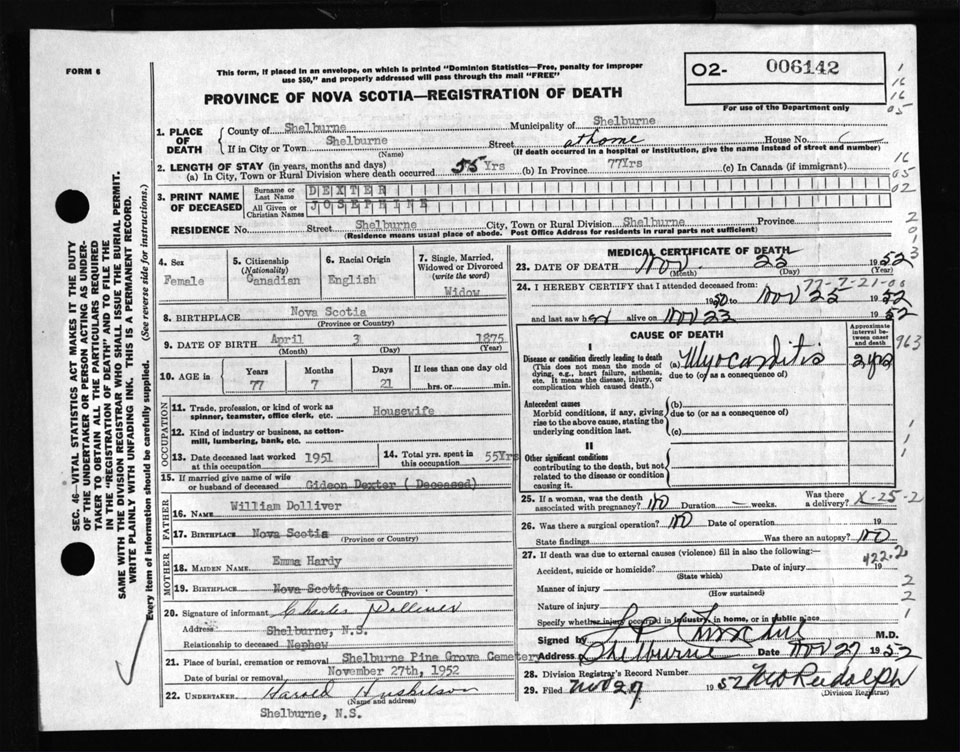 FORM 6
This form, if placed in an envelope, on which is printed "Dominion Statistics—Free, penalty for improper
use $50," and properly addressed will pass through the mail "FREE"
PROVINCE OF NOVA SCOTIA—REGISTRATION OF DEATH
02- 006142
For use of the Department only
1. PLACE OF DEATH
County of Shelburne Municipality of Shelburne
If in City or Town Shelburne Street at home House No.
(Name) (If death occurred in a hospital or institution, give the name instead of street and number)
2. LENGTH OF STAY (in years, months and days)
(a) In City, Town or Rural Division where death occurred 55 Yrs (b) In Province 77Yrs (c) In Canada (if immigrant)
3. PRINT NAME OF DECEASED
Surname or Last Name DEXTER
All Given or Christian Names JOSEPHINE
RESIDENCE No. Street Shelburne City, Town or Rural Division Shelburne Province
(Residence means usual place of abode. Post Office Address for residents in rural parts not sufficient)
4. Sex
Female
5. Citizenship
(Nationality)
Canadian
6. Racial Origin
English
7. Single, Married,
Widowed or Divorced
(write the word)
Widow
8. BIRTHPLACE Nova Scotia
(Province or Country)
9. DATE OF BIRTH April 3 1875
(Month) (Day) (Year)
10. AGE in
Years Months Days If less than one day old
77 7 21 hrs. or min.
OCCUPATION
11. Trade, profession, or kind of work as
spinner, teamster, office clerk, etc. Housewife
12. Kind of industry or business, as cotton-
mill, lumbering, bank, etc.
13. Date deceased last worked
at this occupation 1951
14. Total yrs. spent in
this occupation 55Yrs
15. If married give name of wife
or husband of deceased Gideon Dexter ( Deceased)
FATHER
16. NAME William Dolliver
17. BIRTHPLACE Nova Scotia
(Province or Country)
MOTHER
18. MAIDEN NAME Emma Hardy
19. BIRTHPLACE Nova Scotia
(Province or Country)
20. Signature of informant Charles Dolliver
Address Shelburne, N.S.
Relationship to deceased Nephew
21. Place of burial, cremation or removal Shelburne Pine Grove Cemetery
Date of burial or removal November 27th, 1952
22. UNDERTAKER Harold
(Name and address)
Shelburne, N.S.
MEDICAL CERTIFICATE OF DEATH
23. DATE OF DEATH Nov. 25 1952
(Month) (Day) (Year)
77-7-21-00
24. I HEREBY CERTIFY that I attended deceased from
1950 to Nov 25 1952
and last saw her alive on Nov 23 1952
CAUSE OF DEATH
Approximate interval between onset and death
I
Disease or condition directly leading to death
(This does not mean the mode of
dying, e.g., heart failure, asthenia,
etc. It means the disease, injury, or
complication which caused death.)
(a) Myocarditis 2 yrs
due to (or as a consequence of)
Antecedent causes
Morbid conditions, if any, giving
rise to the above cause, stating the
underlying condition last.
(b)
due to (or as a consequence of)
(c)
II
Other significant conditions
contributing to the death, but not
related to the disease or condition
causing it.
25. If a woman, was the death
associated with pregnancy? No Duration — weeks.
Was there
a delivery? X-25-2
26. Was there a surgical operation? No Date of operation 19
State findings Was there an autopsy? No
27. If death was due to external causes (violence) fill in also the following:—
422.2
Accident, suicide or homicide? Date of injury 19
(State which)
Manner of injury
(How sustained)
Nature of injury
Specify whether injury occurred in industry, in home, or in public place
Signed by M.D.
Address Shelburne Date Nov 27 1952
28. Division Registrar's Record Number
29. Filed Nov 27 1952 Rudolph
(Division Registrar)
SEC. 46—VITAL STATISTICS ACT MAKES IT THE DUTY
OF THE UNDERTAKER OR PERSON ACTING AS UNDER-
TAKER TO OBTAIN ALL THE PARTICULARS REQUIRED
IN THE "REGISTRATION OF DEATH" AND TO FILE THE
SAME WITH THE DIVISION REGISTRAR WHO SHALL ISSUE THE BURIAL PERMIT.
WRITE PLAINLY WITH UNFADING INK. THIS IS A PERMANENT RECORD.
Every item of information should be carefully supplied. (See reverse side for instructions.)
1
16
16
05
16
05
02
2
0
1
3
963
1
1
1
2
2
1